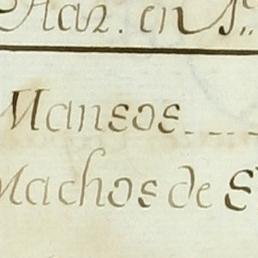 Har. en
Mansos
Machos de